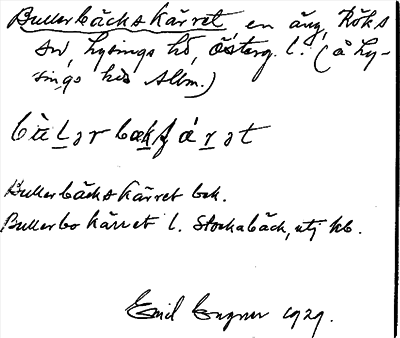 Bullerbäckskärret en äng, Höks
sn, Lysings hd, Österg. l. (å Ly-
sings hds Allm.)
bùlәrbækʃárәt
Bullerbäckskärret bek.
Bullerbo kärret l. Stockabäck, utj kb.
Emil Engner 1929.